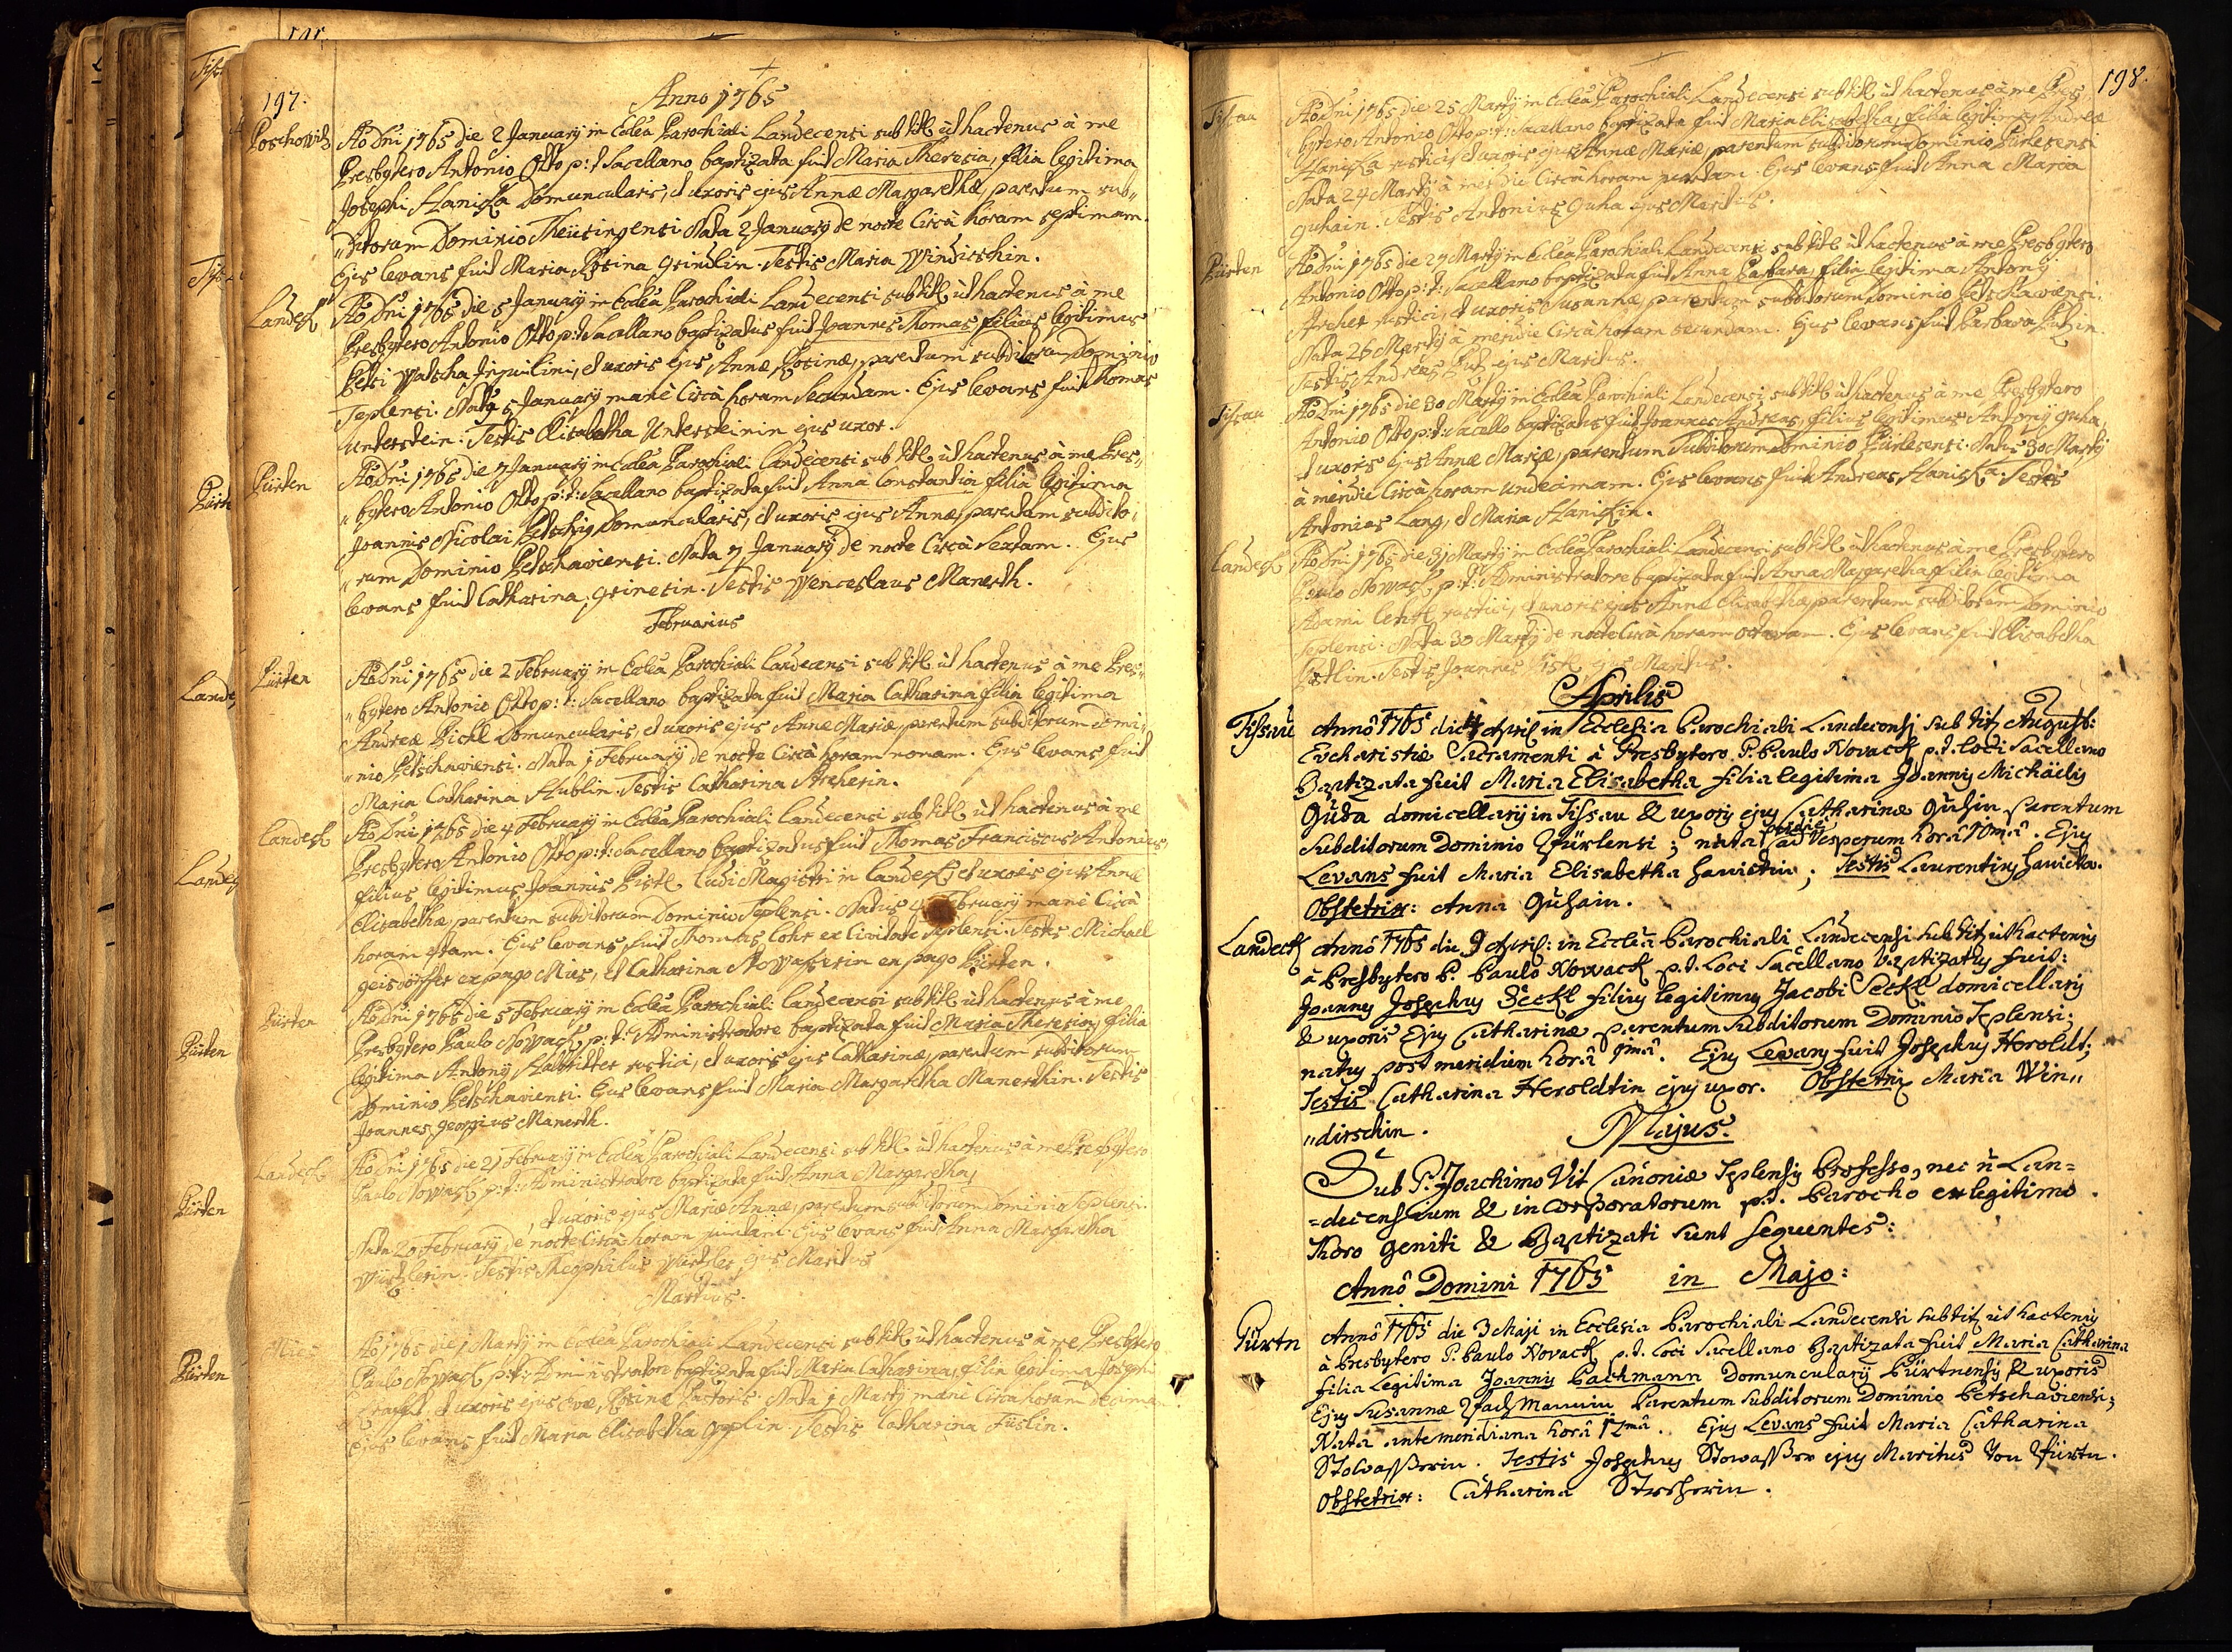 197.
Anno 1765
Poschowitz
Ao Dni 1765 die 2 January in Eclêa Parochiali Landecensi sub titl ut hactenus à me
Presbytero Antonio Otto p: t: Sacellano baptizata fuit Maria Theresia, filia legitima
Josephi Haniska Domuncularis, et uxoris ejus Annæ Margarethæ, parentum sub„
„ditorum Dominio Theüsingensi. Nata 2 January de nocte Circà horam septimam.
Ejus levans fuit Maria Rosina grindlin. Testis Maria Windirschin.
Landeck
Ao Dni 1765 die 5 January in Eclêa Parochiali Landecensi sub titl ut hactenus à me
Presbytero Antonio Otto p: t: Sacellano baptizatus fuit Joannes Thomas, filius legitimus
Petri Watscha Inquilini, et uxoris ejus Annæ Rosinæ, parentum subditorum Dominio
Teplensi. Natus 5 January manè Circà horam Secundam. Ejus levans fuit Thomas
Unterstein. Testis Elisabetha Untersteinin ejus uxor.
Pürten
Ao Dni 1765 die 7 January in Eclêa Parochiali Landecensi sub titl ut hactenus à me Pres„
„bytero Antonio Otto p: t: Sacellano baptizata fuit Anna Constantia filia legitima
Joannis Nicolai Petschig Domuncularis, et uxoris ejus Annæ, parentum subdito„
„rum Dominio Petschaviensi. Nata 7 January de nocte Circà Sextam. Ejus
levans fuit Catharina grinesin. Testis Wenceslaus Manerth.
Februarius
Pürten
Ao Dni 1765 die 2 February in Eclêa Parochiali Landecensi sub titl ut hactenus à me Pres„
„bytero Antonio Otto p: t: Sacellano baptizata fuit Maria Catharina filia legitima
Andreæ Pickl Domuncularis, et uxoris ejus Annæ Mariæ, parentum subditorum Domi„
„nio Petschaviensi. Nata 1 February de nocte Circà horam nonam. Ejus levans fuit
Maria Catharina Hublin. Testis Catharina Archerin.
Landeck
Ao Dni 1765 die 4 February in Eclêa Parochiali Landecensi sub titl ut hactenus à me
Presbytero Antonio Otto p: t: Sacellano baptizatus fuit Thomas Franciscus Antonius,
filius legitimus Joannis Pistl ludi Magistri in Landeck, et uxoris ejus Annæ
Elisabethæ, parentum subditorum Dominio Teplensi. Natus 4 February manè Circà
horam 4tam. Ejus levans fuit Thomas Lohr ex Civitate Teplensi. Testis Michael
geisdörffer ex pago Mies, et Catharina Stowasserin ex pago Pürten.
Pürten
Ao Dni 1765 die 5 February in Eclêa Parochiali Landecensi sub titl ut hactenus à me
Presbytero Paulo Nowack p: t: Administratore baptizata fuit Maria Theresia, filia
legitima Antony rustici, et uxoris ejus Catharinæ, parentum subditorum
Dominio Petschaviensi. Ejus levans fuit Maria Margaretha Manerthin. Testis
Joannes georgius Manerth.
Landeck
Ao Dni 1765 die 21 February in Eclêa Parochiali Landecensi sub titl ut hactenus à me Presbytero
Paulo Nowack p: t: Administratore baptizata fuit Anna Margaretha,
, et uxoris ejus Mariæ Annæ, parentum subditorum Dominio Teplensi.
Nata 20 February de nocte Circà horam quintam. Ejus levans fuit Anna Margaretha
Würtzlerin. Testis Theophilus Würtzler ejus Maritus
Martius.
Mies
Ao 1765 die 1 Marty in Eclêa Parochiali Landecensi sub titl ut hactenus à me Presbytero
Paulo Nowack p: t: Administratore baptizata fuit Maria Catharina, filia legitima Josephi
et uxoris ejus Evæ Rosinæ Nata 1 Marty manè Circà horam decimam
Ejus levans fuit Maria Elisabetha Testis Catharina Füslin.
198.
Tissau
Ao Dni 1765 die 25 Marty in Eclêa Parochiali Landecensi sub titl ut hactenus à me Pres„
bytero Antonio Otto p: t: Sacellano baptizata fuit Maria Elisabetha, filia legitima Andreæ
Haniska rustici, et uxoris ejus Annæ Mariæ, parentum subditorum Dominio Pürlesensi
Nata 24 Marty à meridie Circà horam quartam. Ejus levans fuit Anna Maria
guhain. Testis Antonius guha ejus Maritus.
Pürten
Ao Dni 1765 die 27 Marty in Eclêa Parochiali Landecensi sub titl ut hactenus à me Presbytero
Antonio Otto p: t: Sacellano baptizata fuit Anna Barbara, filia legitima Antony
Archer rustici, et uxoris Susannæ, parentum subditorum Dominio Petschaviensi.
Nata 26 Marty à meridie Circà horam secundam. Ejus levans fuit Barbara Putzin.
Testis Andreas Putz ejus Maritus.
Tissau
Ao Dni 1765 die 30 Marty in Eclêa Parochiali Landecensi sub titl ut hactenus à me Presbytero
Antonio Otto p: t: Sacello baptizatus fuit Joannes Andreas, filius legitimus Antony guha,
et uxoris ejus Annæ Mariæ, parentum Subditorum Dominio Pürlesensi. Natus 30 Marty
à meridie Circà horam undecimam. Ejus levans fuit Andreas Haniska. Testis
Antonius Lang, et Maria Haniskin.
Landeck
Ao Dni 1765 die 31 Marty in Eclêa Parochiali Landecensi sub titl ut hactenus à me Presbytero
Paulo Nowack p: t: Administratore baptizata fuit Anna Margaretha filia legitima
Adami rustici, et uxoris ejus Annæ Elisabethæ, parentum subditorum Dominio
Teplensi. Nata 30 Marty de nocte Circà horam octavam. Ejus levans fuit Elisabetha
Pistlin. Testis Joannes Pistl ejus Maritus.
Aprilis
Tissau
Annô 1765 die 4 April in Ecclesia Parochiali Landecensi sub tit Augusti:
Eucharistiæ Sacramenti à Presbytero P. Paulo Novack p. t. loci Sacellano
Baptizata fuit Maria Elisabetha filia legitima Joannis Michäelis
Guha domicellarij in Tissau & uxoris ejus Catharinæ Guhin Parentum
Subditorum Dominio Pürlensi; nata pridie ad Vesperum horâ 10mâ. Ejus
Levans fuit Maria Elisabetha Hanistin; Testis Laurentius Hanicka.
Obstetrix: Anna Guhain.
Landeck
Annô 1765 die 9 April: in Ecclêa Parochiali Landecensi sub tit ut hactenus
à Presbytero P. Paulo Nowack p. t. Loci Sacellano baptizatus fuit:
Joannes Josephus Seckl filius legitimus Jacobi Seckl domicellarij
& uxoris Ejus Catharinæ parentum Subditorum Dominio Teplensi;
natus post meridiem horâ 9mâ. Ejus Levans fuit Josephus Heroldt;
Testis Catharina Heroldtin ejus uxor. Obstetrix Maria Win„
„dirschin.
Majus.
Sub P. Joachimo Vit Canoniæ Teplensis Professo, nec n̄ Lan=
=decensium & incorporatorum p. t. Parocho ex legitimo
thoro geniti & Baptizati sunt sequentes:
Annô Domini 1765 in Majo:
Pürtn
Annô 1765 die 3 Maji in Ecclesia Parochiali Landecensi sub tit ut hactenus
à Presbytero P. Paulo Novack p. t. Loci Sacellano Baptizata fuit Maria Catharina
filia Legitima Joannis Bachmann Domuncularij Pürtnensis & uxoris
Ejus Susannæ Pachmannin Parentum Subditorum Dominio Petschaviensi;
Nata antemeridiana horâ 12mâ. Ejus Levans fuit Maria Catharina
Stowasserin. Testis Josephus Stowasser ejus Maritus von Pürtn.
Obstetrix: Catharina